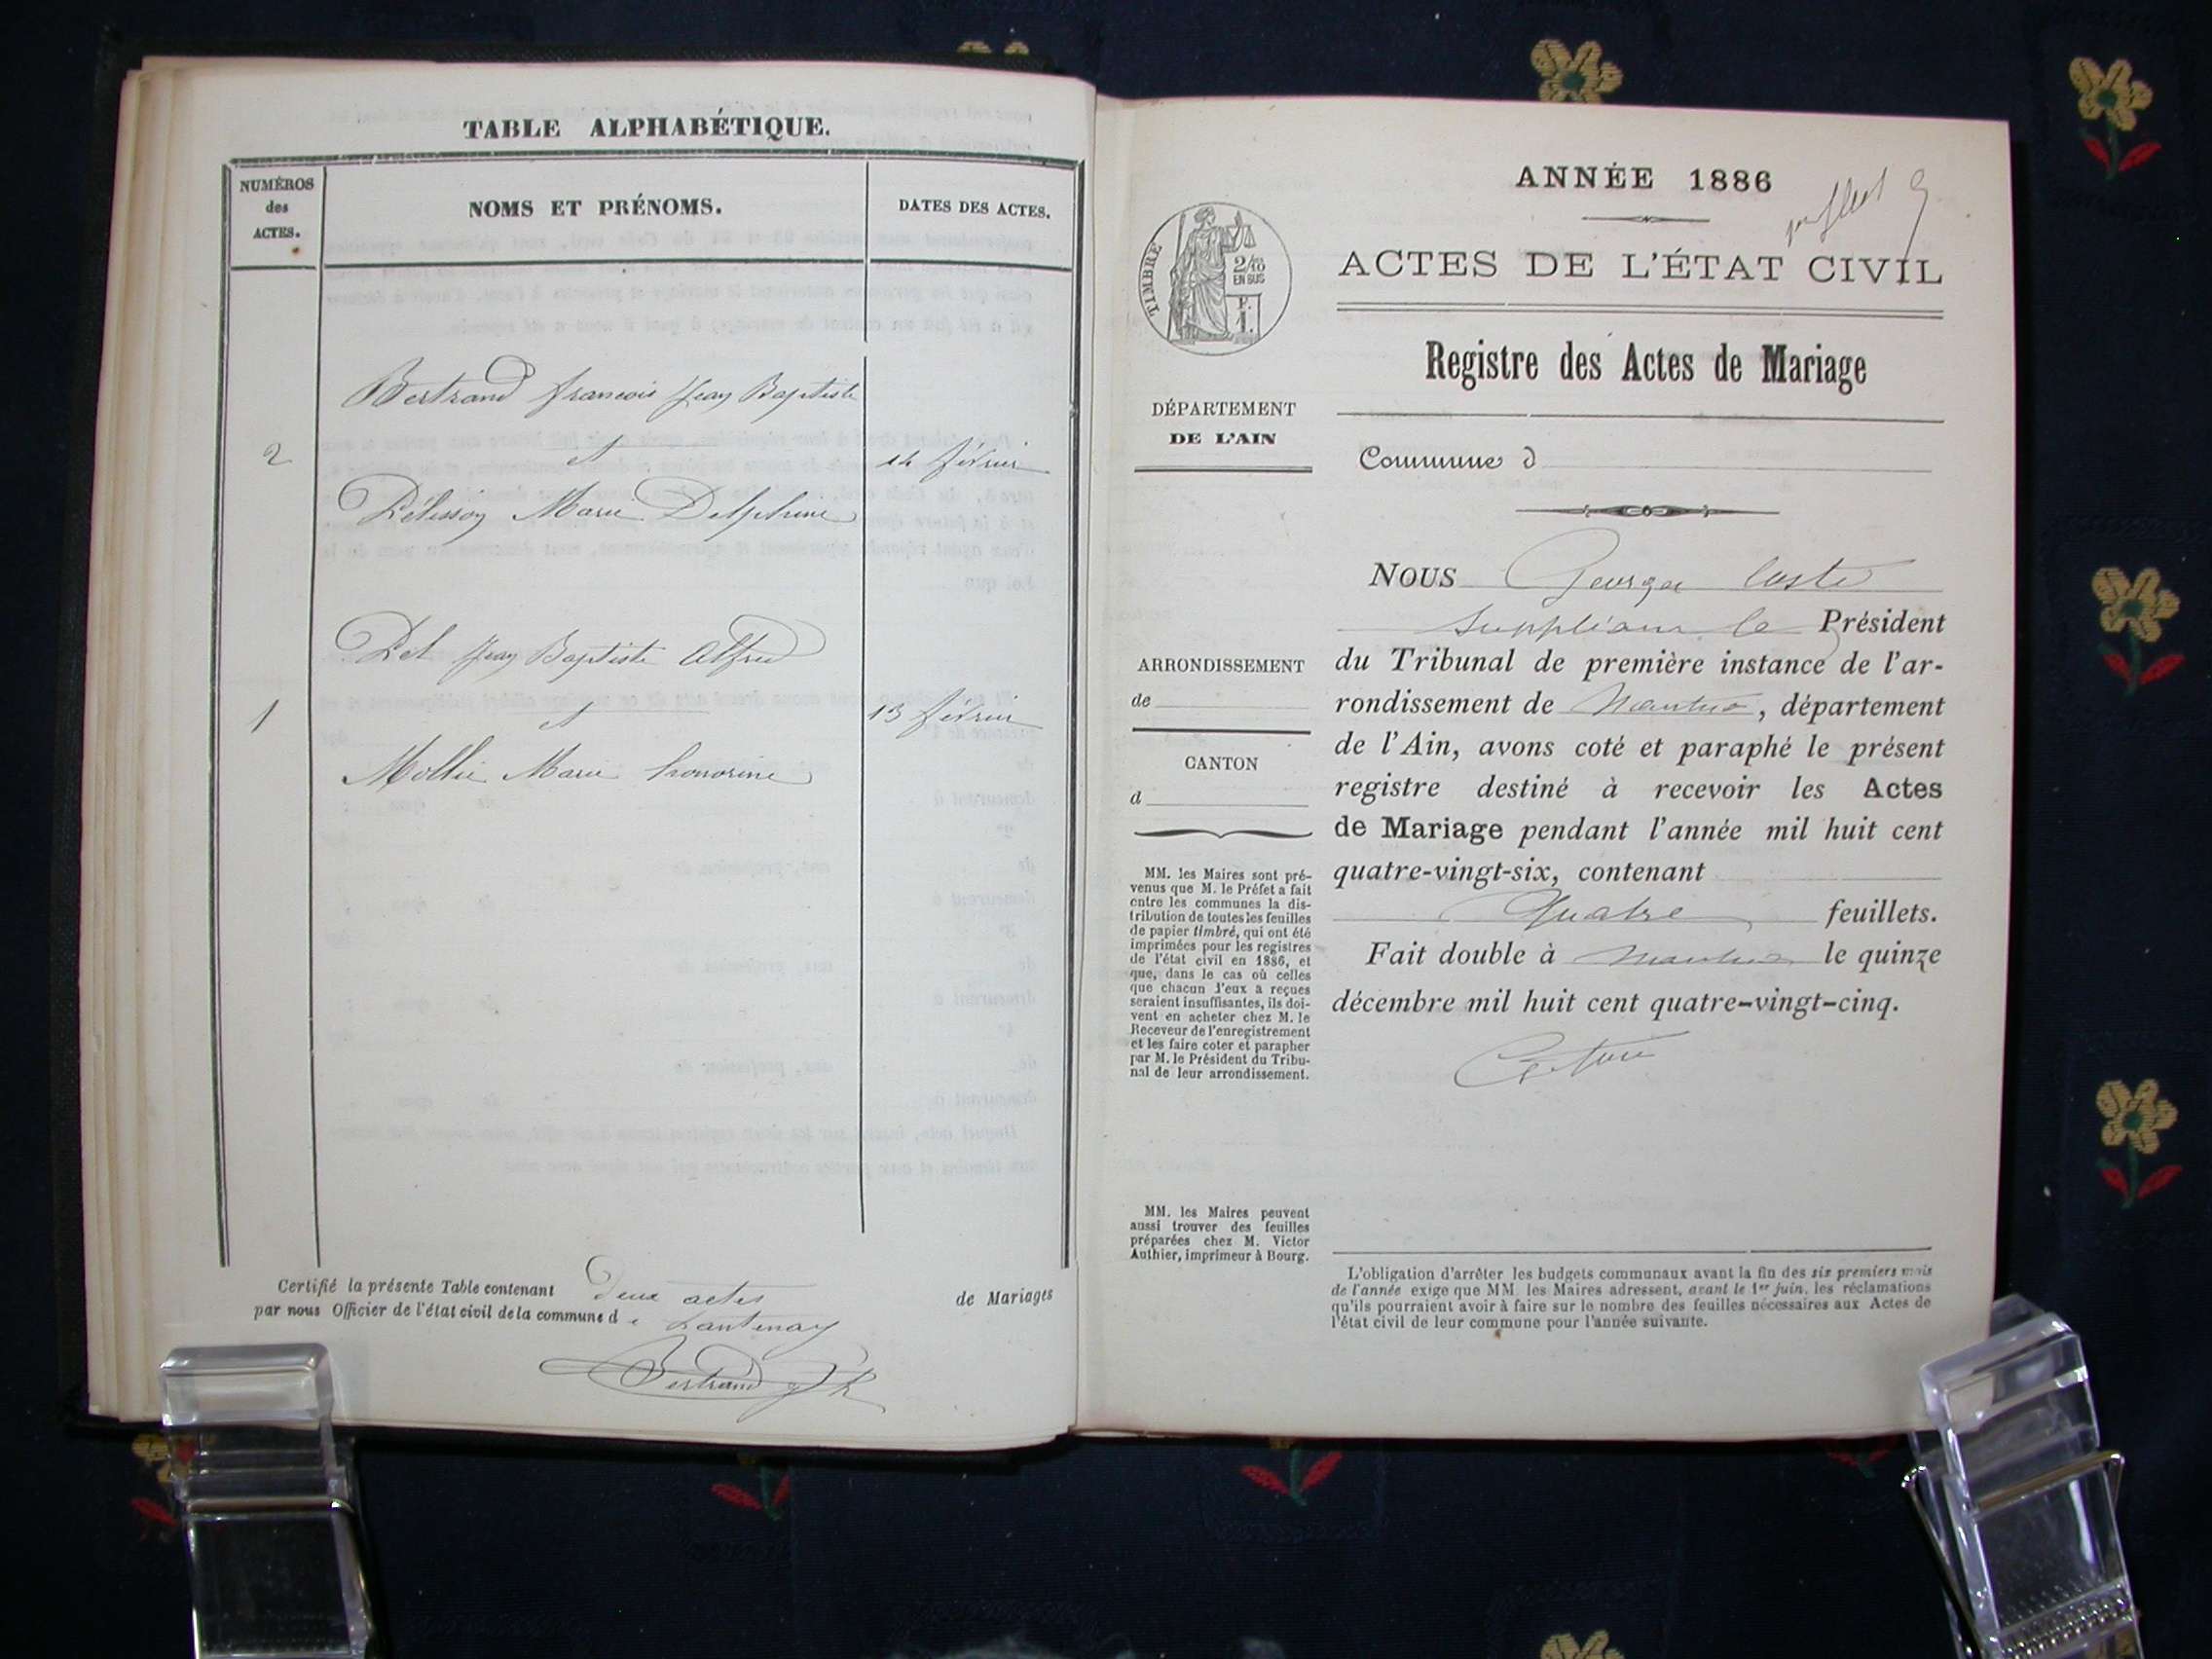 TABLE ALPHABÉTIQUE.
NUMÉROS
des
ACTES.
NOMS ET PRÉNOMS.
DATES DES ACTES.
Bertrand francois Jean Baptiste
2
et
14 février
Pélisson Marie Delphine
Pel Jean Baptiste Alfred
1
et
13 février
Mollie Marie honorine
Certifié la présente Table contenant deux actes de Mariages
par nous Officier de l'état civil de la commune de Lantenay
Bertrand
ANNÉE 1886
ACTES DE L'ÉTAT CIVIL
TIMBRE
2/10
EN SUS
F.
1.
Registre des Actes de Mariage
DÉPARTEMENT
DE L'AIN
Commune d
NOUS Georges
suppléant le Président
ARRONDISSEMENT
de
CANTON
d
du Tribunal de première instance de l'ar-
rondissement de Nantua, département
de l'Ain, avons coté et paraphé le présent
registre destiné à recevoir les Actes
de Mariage pendant l'année mil huit cent
quatre-vingt-six, contenant
Quatre feuillets.
Fait double à Nantua le quinze
décembre mil huit cent quatre-vingt-cinq.
MM. les Maires sont pré-
venus que M. le Préfet a fait
entre les communes la dis-
tribution de toutes les feuilles
de papier timbré, qui ont été
imprimées pour les registres
de l'état civil en 1886, et
que, dans le cas où celles
que chacun d'eux a reçues
seraient insuffisantes, ils doi-
vent en acheter chez M. le
Receveur de l'enregistrement
et les faire coter et parapher
par M. le Président du Tribu-
nal de leur arrondissement.
MM. les Maires peuvent
aussi trouver des feuilles
préparées chez M. Victor
Authier, imprimeur à Bourg.
L'obligation d'arrêter les budgets communaux avant la fin des six premiers mois
de l'année exige que MM. les Maires adressent, avant le 1er juin, les réclamations
qu'ils pourraient avoir à faire sur le nombre des feuilles nécessaires aux Actes de
l'état civil de leur commune pour l'année suivante.